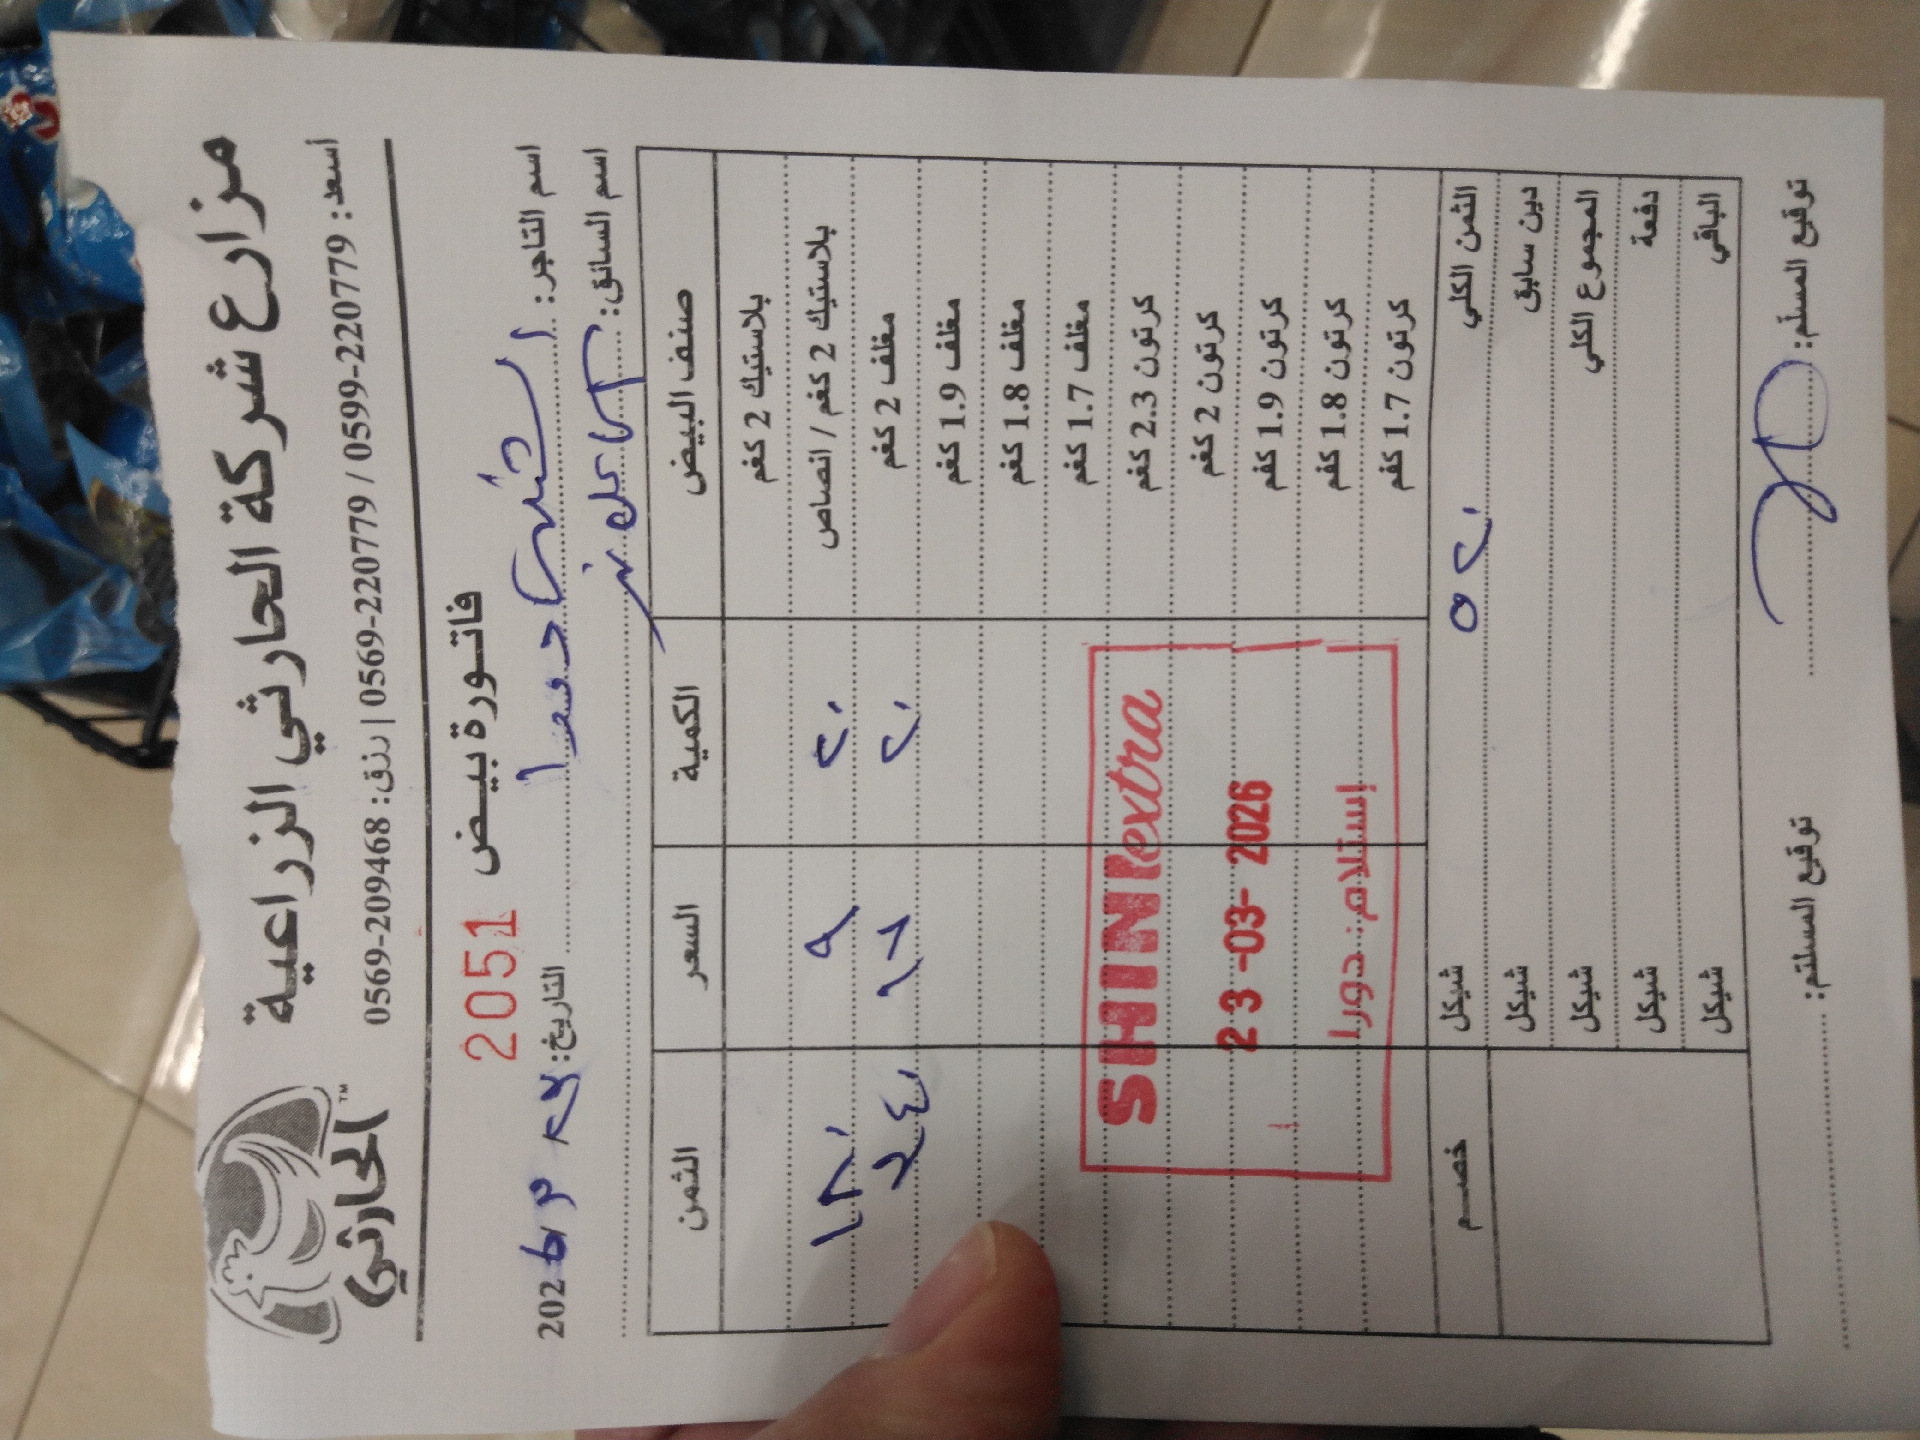 مزارع شركة الحارثي الزراعية
الحارثي TM
أسعد: 0599-220779 / 0569-220779 | رزق: 0569-209468
فاتورة بيض
2051
اسم التاجر: دورا
التاريخ: 2026
اسم السائق:
صنف البيض الكمية السعر الثمن
بلاستيك 2 كغم
بلاستيك 2 كغم / انصاص ٢٠ ٩ ١٨٠
مغلف 2 كغم ٢٠ ١٧ ٣٤٠
مغلف 1.9 كغم
مغلف 1.8 كغم
مغلف 1.7 كغم
كرتون 2.3 كغم
كرتون 2 كغم
كرتون 1.9 كغم
كرتون 1.8 كغم
كرتون 1.7 كغم
SHINI extra
23-03-2026
إستلام: دورا
الثمن الكلي ٥٢٠ شيكل خصم
دين سابق شيكل
المجموع الكلي شيكل
دفعة شيكل
الباقي شيكل
توقيع المسلّم: توقيع المستلم: